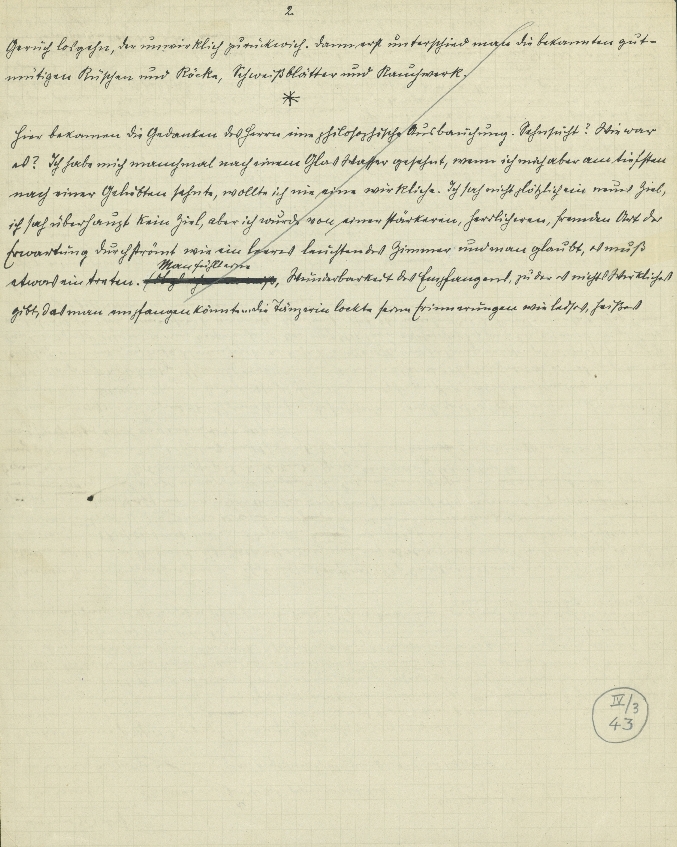 2
Geruch losgehn, der unwirklich zurückwich. Dann erst unterschied man die bekannten gut-
mütigen Rüschen und Röcke, Schweißblätter und Rauchwerk.
*
Hier bekamen die Gedanken des Herrn eine philosophische Ausbauchung. Sehnsucht? Wie war
es? Ich habe mich manchmal nach einem Glas Wasser gesehnt, wenn ich mich aber am tiefsten
nach einer Geliebten sehnte, wollte ich nie eine wirkliche. Ich sah nicht plötzlich ein neues Ziel,
ich sah überhaupt kein Ziel, aber ich wurde von einer stärkeren, herrlicheren, fremden Art der
Erwartung durchströmt wie ein leeres leuchtendes Zimmer und man glaubt, es muß
Man fühlt eine
etwas eintreten. Wunderbarkeit des Empfangens, zu der es nichts Wirkliches
gibt, das man empfangen könnte. die Tänzerin lockte seine Erinnerungen wie heißes
IV/3
43